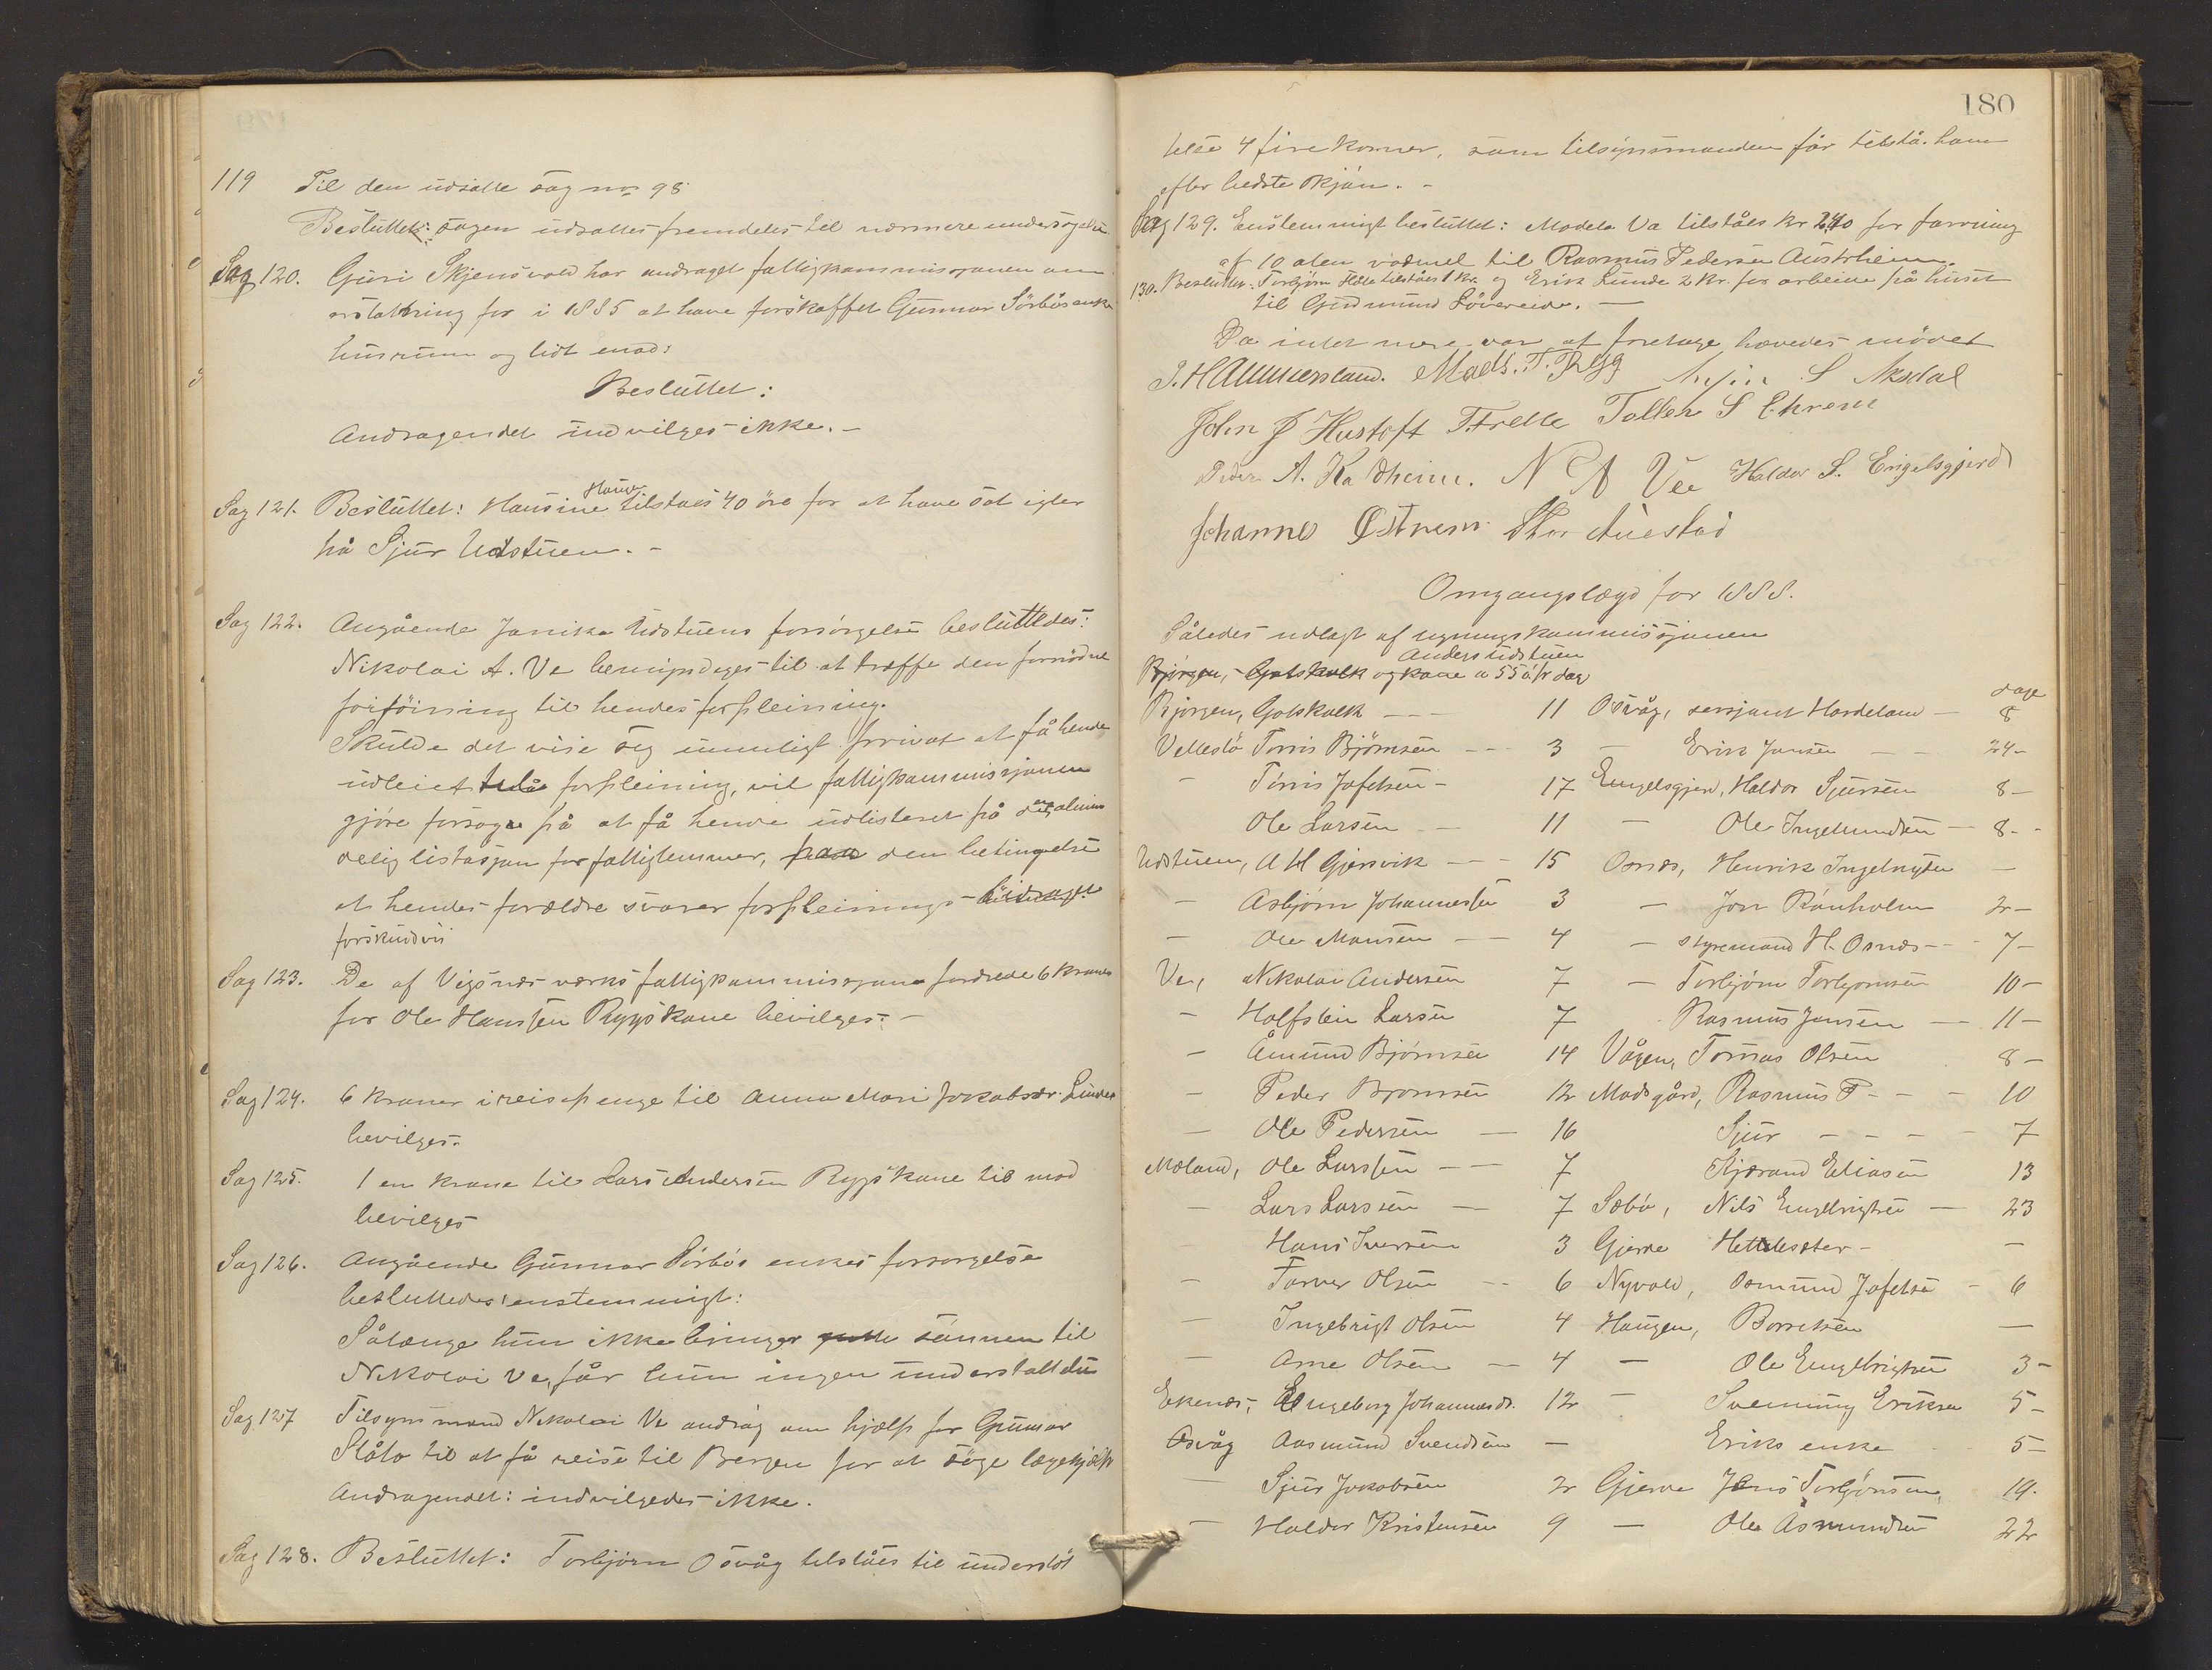 119 Til den udsatte sag no 98
Besluttet: sagen udsattes fremdeles til nærmere undersøgelse
Sag 120. Guri Skjensvold har andraget fattigkommissjonen om
erstattning for i 1885 at have forskaffet Gunnar Sørbøs enke
husrum og lidt mad:
Besluttet:
Andragendet indvilges ikke. –
Sag 121. Besluttet: Hansine Hauge tilstaes 40 øre for at have sat igler
på Sjur Udstuen. –
Sag 122. Angående Janika Udstuens forsørgelse besluttedes:
Nikolai A. Ve bemyndiges til at træffe den fornødne
forføining til hendes forpleining.
Skulde det vise sig umuligt privat at få hende
udleiet til forpleining, vil fattigkommissjonen
gjøre forsøg på at få hende udlisteret på den almin
delig listasjon for fattiglemmer, paa den betingelse
at hendes forældre svarer forpleinings-bidraget
forskudvis
Sag 123. De af Vigsnæs værks fattigkommissjon fordrede 6 kroner
for Ole Hanssen Rygs kone bevilges. –
Sag 124. 6 kroner i reisepenge til Anna Mari Jakobsdr. Lunde
bevilges.
Sag 125. 1 en krone til Lars Andersen Rygs kone til mad
bevilges
Sag 126. Angående Gunnar Sørbøs enkes forsørgelse
besluttedes enstemmigt:
Sålænge hun ikke bringer sønnen til
Nikolai Ve, får hun ingen understøttelse
Sag 127 Tilsynsmand Nikolai Ve androg om hjælp for Gunnar
Slåto til at få reise til Bergen for at søge lægehjælp
Andragendet: indvilgedes ikke.
Sag 128. Besluttet: Torbjørn Osvåg tilståes til understøt
180
telse 4 fire kroner, som tilsynsmanden får tilstå ham
efter bedste skjøn. –
Sag 129. Enstemmigt besluttet: Madela Va tilståes kr 2,40 for farvning
af 10 alen vadmel til Rasmus Pedersen Austrheim.
130. Besluttet: Torbjørn tilståes 1 kr. og Erik Lunde 2 kr. for arbeide på huset
til Gudmund Løvereide. –
Da intet mere var at foretage hævedes mødet
J. Hammersland. Mads. T. Rygg S Aksdal
John J Hustoft T. Frette Tollek S Ekrene
Peder A. Kaldheim. N A Vee Haldor S. Engelsgjerd
Johannes Østrem. Thor Auestad
Omgangslægd for 1888.
Således udlagt af regningskommissjonen
Anders Udstuen
Bjørgen, Gotskalk og kone a 55 ø. pr dag
dage
Bjørgen, Gotskalk – – 11 Osvåg, sersjant Hordeland – 8
Vellestø Tørris Bjørnsen – – 3 – Erik Jansen – – 24 –
– Tørris Jofetsen – 17 Engelsgjerd, Haldor Sjursen 8 –
Ole Larsen – 11 – Ole Ingemundsen – 8 –
Udstuen, A H Gjersvik – – 15 Osnes, Henrik Ingebrigtsen –
– Asbjørn Johannessen 3 – Jon Rønholm 2 –
– Ole Monsen – – 4 – styremand H. Osnæs – – 7 –
Ve, Nikolai Andersen 7 – Torbjørn Torbjørnsen 10 –
– Halfstein Larsen 7 Rasmus Jansen – 11 –
– Åmund Bjørnsen 14 Vågen, Tomas Olsen 8 –
– Peder Bjørnsen 12 Madsgård, Rasmus P – – – 10
– Ole Pedersen – 16 Sjur – – – – 7
Mæland, Ole Larssen – – 7 Kjærand Eliasen 13
– Lars Larssen – 7 Sæbø, Nils Engelbrigtsen – 23
Hans Iversen 3 Gjerde Hettelsæter – –
– Torver Olsen – – 6 Nyvold, Osmund Jofetsen – 6
– Ingebrigt Olsen 4 Haugen, –
– Arne Olsen – 4 – Ole Engelbrigtsen 3 –
Ekenæs, Engeborg Johannesdr. 12 – Svenning Eriksen 5 –
Osvåg Aasmund Svendsen – Eriks enke 5 –
– Sjur Jakobsen 2 Gjerde Jens Torbjørnsen 19.
– Haldor Kristensen 9 – Ole Åsmundsen 22